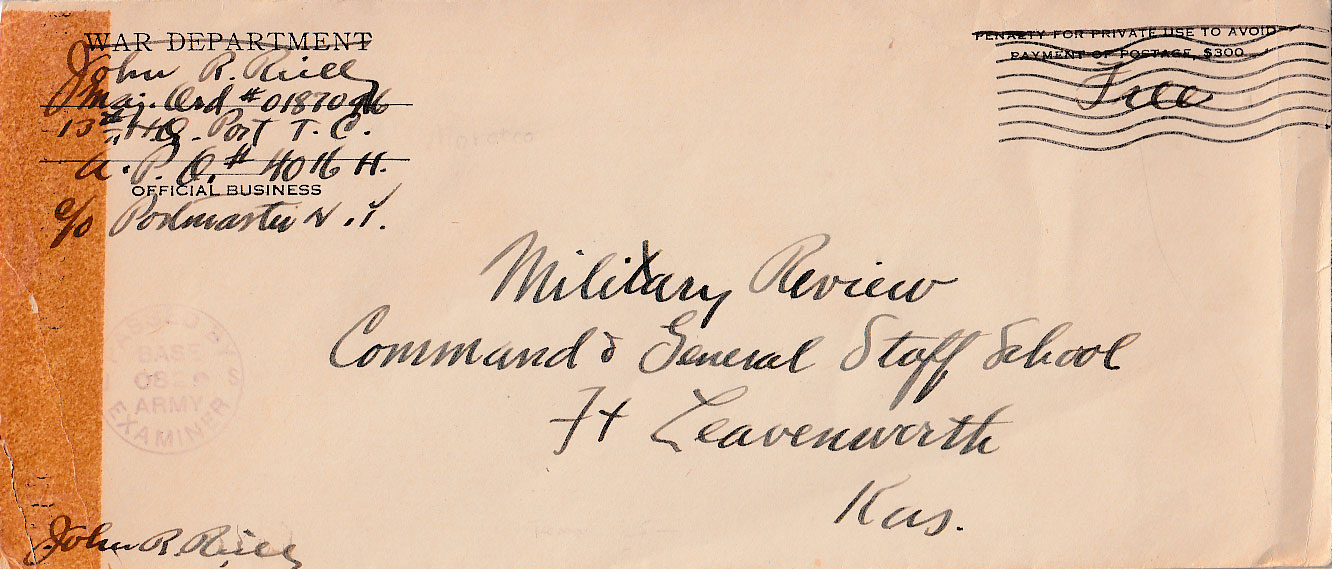 WAR DEPARTMENT
John R. Riell
Maj. Ord #
13th HQ. Port T. C.
A. P. O. # 4016 H.
OFFICIAL BUSINESS
c/o Postmaster N. Y.
PENALTY FOR PRIVATE USE TO AVOID
PAYMENT OF POSTAGE, $300
Free
Military Review
Command & General Staff School
Ft Leavenworth
Kas.
BASE
ARMY
EXAMINER
John R. Riell